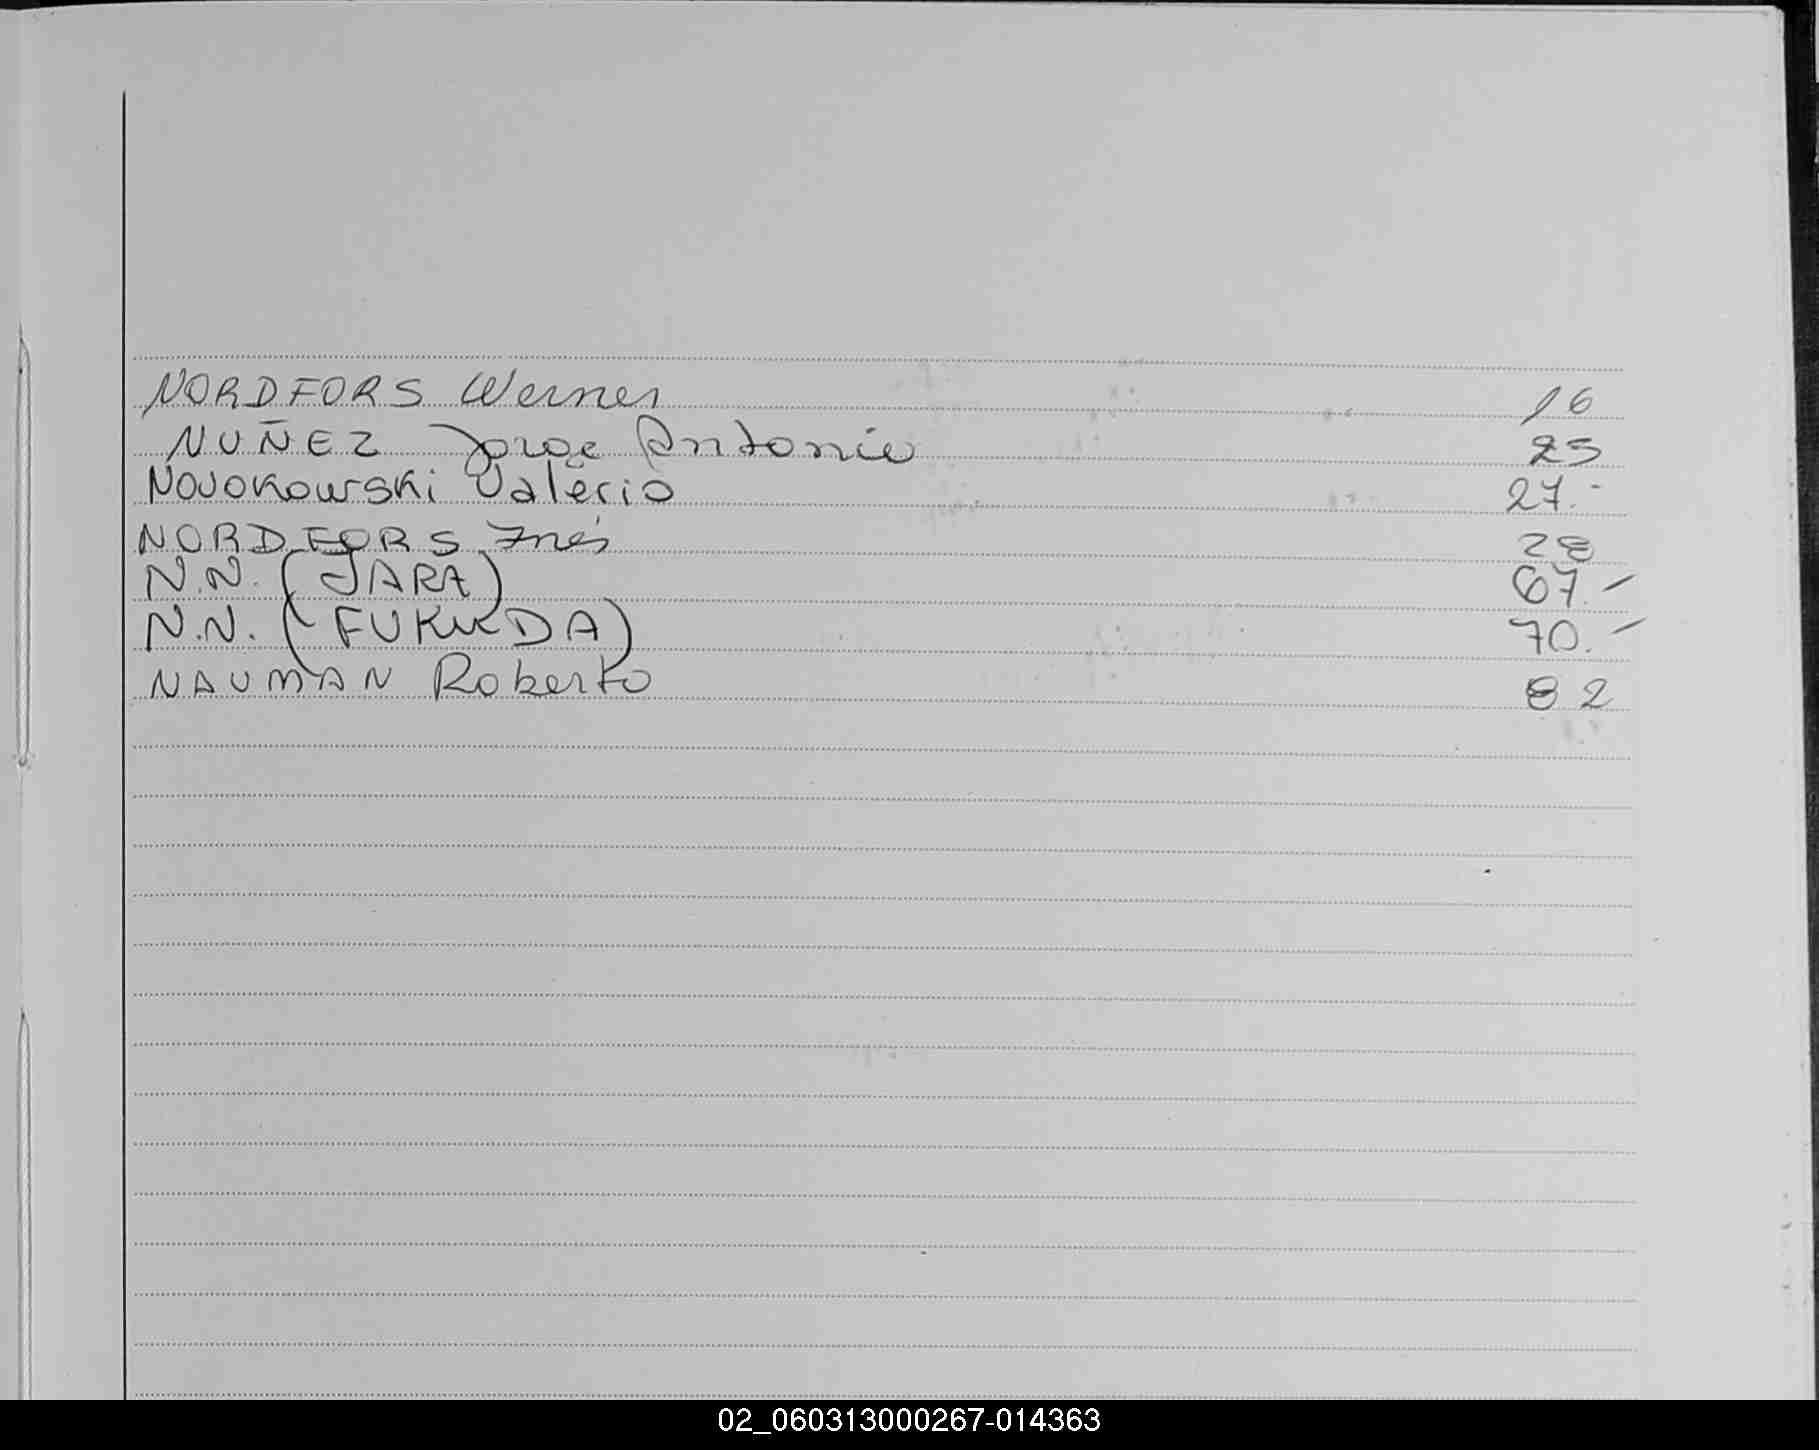 NORDFORS Werner 16
NUÑEZ Jorge Antonio 25
Novokowski Valerio 27.-
NORDFORS Inés 28
N.N. (JARA) 67.-
N.N. (FUKUDA) 70.-
NAUMAN Roberto 82
02_060313000267-014363